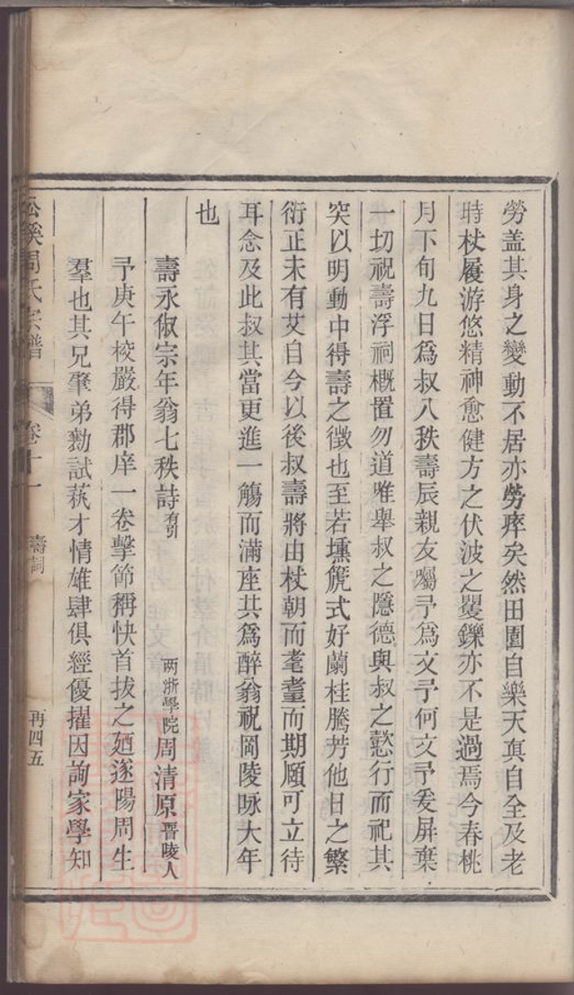 勞盖其身之變動不居亦勞瘁矣然田園自樂天眞自全及老
時杖履游悠精神愈健方之伏波之矍鑠亦不是過焉今春桃
月下旬九日爲叔八秩壽辰親友囑予爲文予何文予爰屏棄
一切祝壽浮祠概置勿道唯舉叔之隱德與叔之懿行而祀其
突以明動中得壽之徵也至若壎箎式好蘭桂騰芳他日之繁
衍正未有艾自今以後叔壽將由杖朝而耄耋而期頤可立待
耳念及此叔其當更進一觴而滿座共爲醉翁祝岡陵咏大年
也
壽永俶宗年翁七秩詩有引
两浙學院周清原晋陵人
予庚午校嚴得郡庠一卷擊節稱快首拔之廼遂陽周生
羣也其兄肇弟勷試蓺才情雄肆俱經優擢因詢家學知
公溪周氏宗譜
卷十一
壽詞
再四五